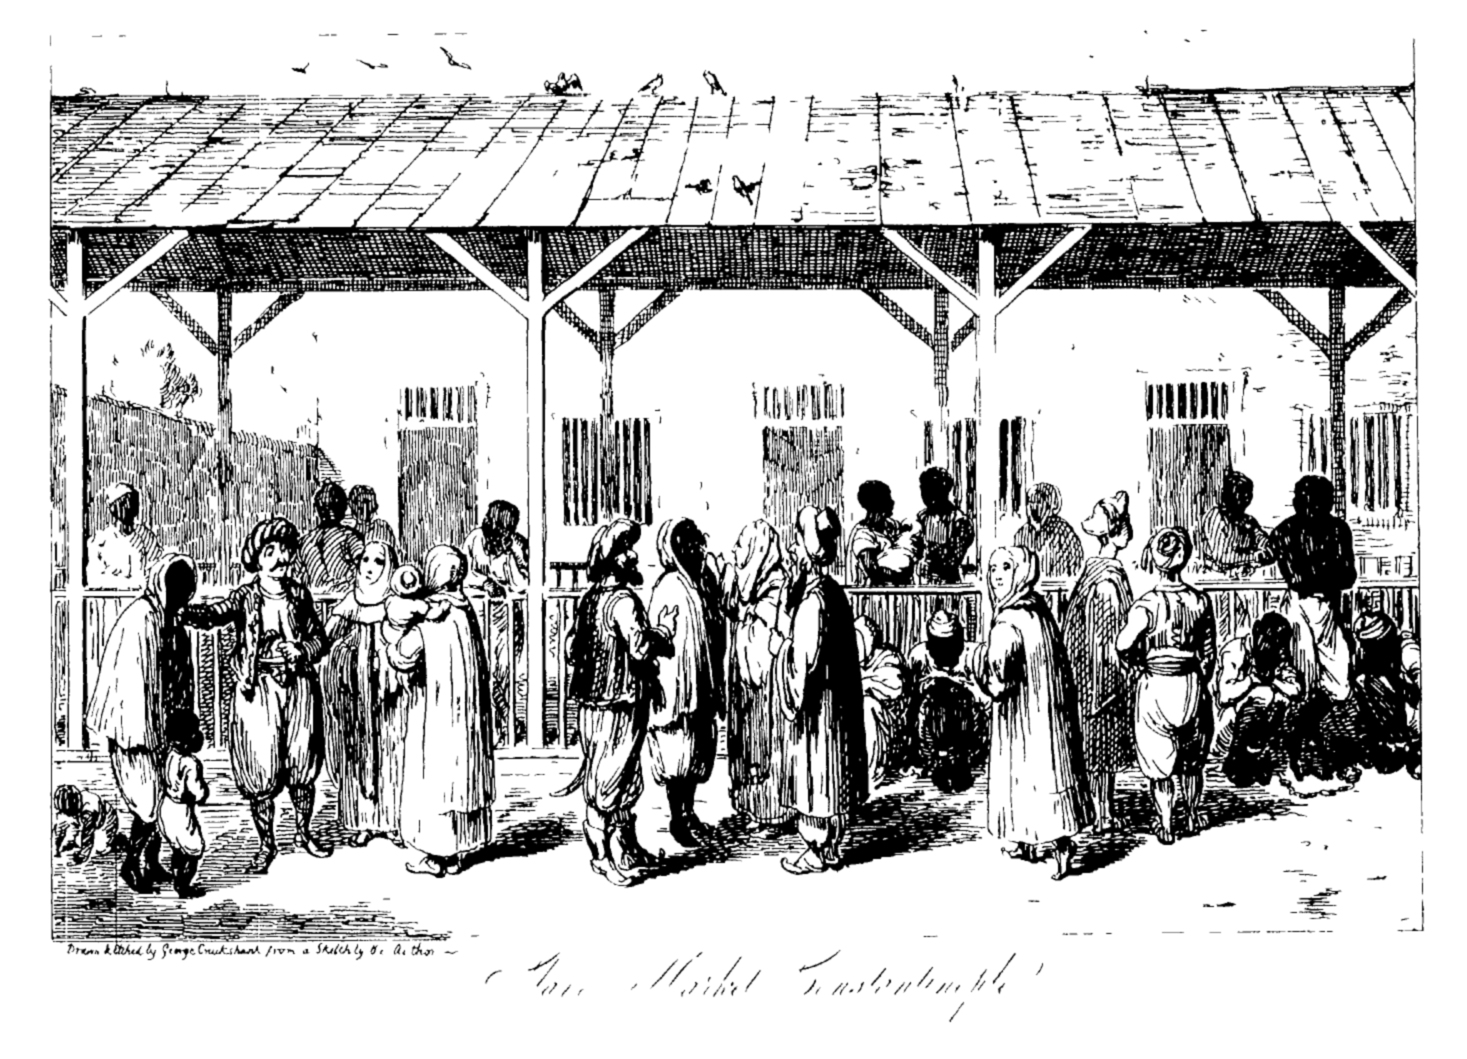 Drawn & Etched by George Cruikshank from a Sketch by the Author
Slave Market Constantinople